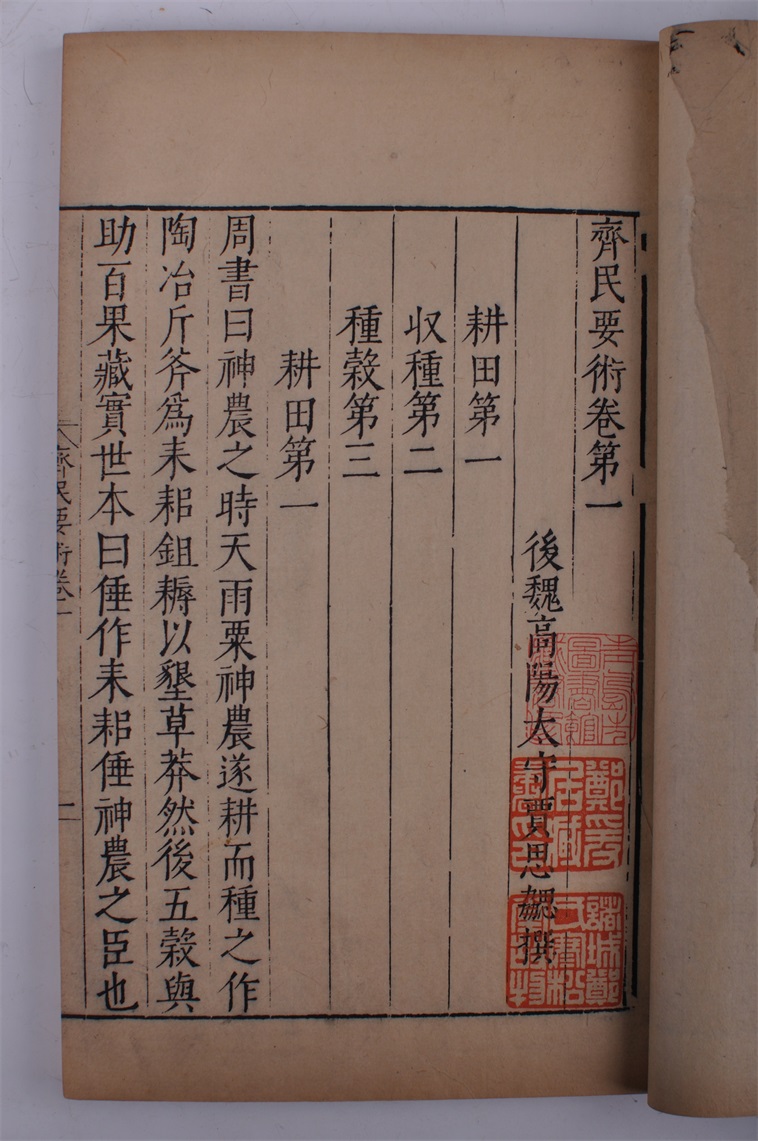 齊民要術卷第一
後魏高陽太守賈思勰撰
耕田第一
収種第二
種榖第三
耕田第一
周書曰神農之時天雨粟神農遂耕而種之作
陶冶斤斧爲耒耜鉏耨以墾草莽然後五榖與
助百果藏實世本曰倕作耒耜倕神農之臣也
齊民要術卷一
一